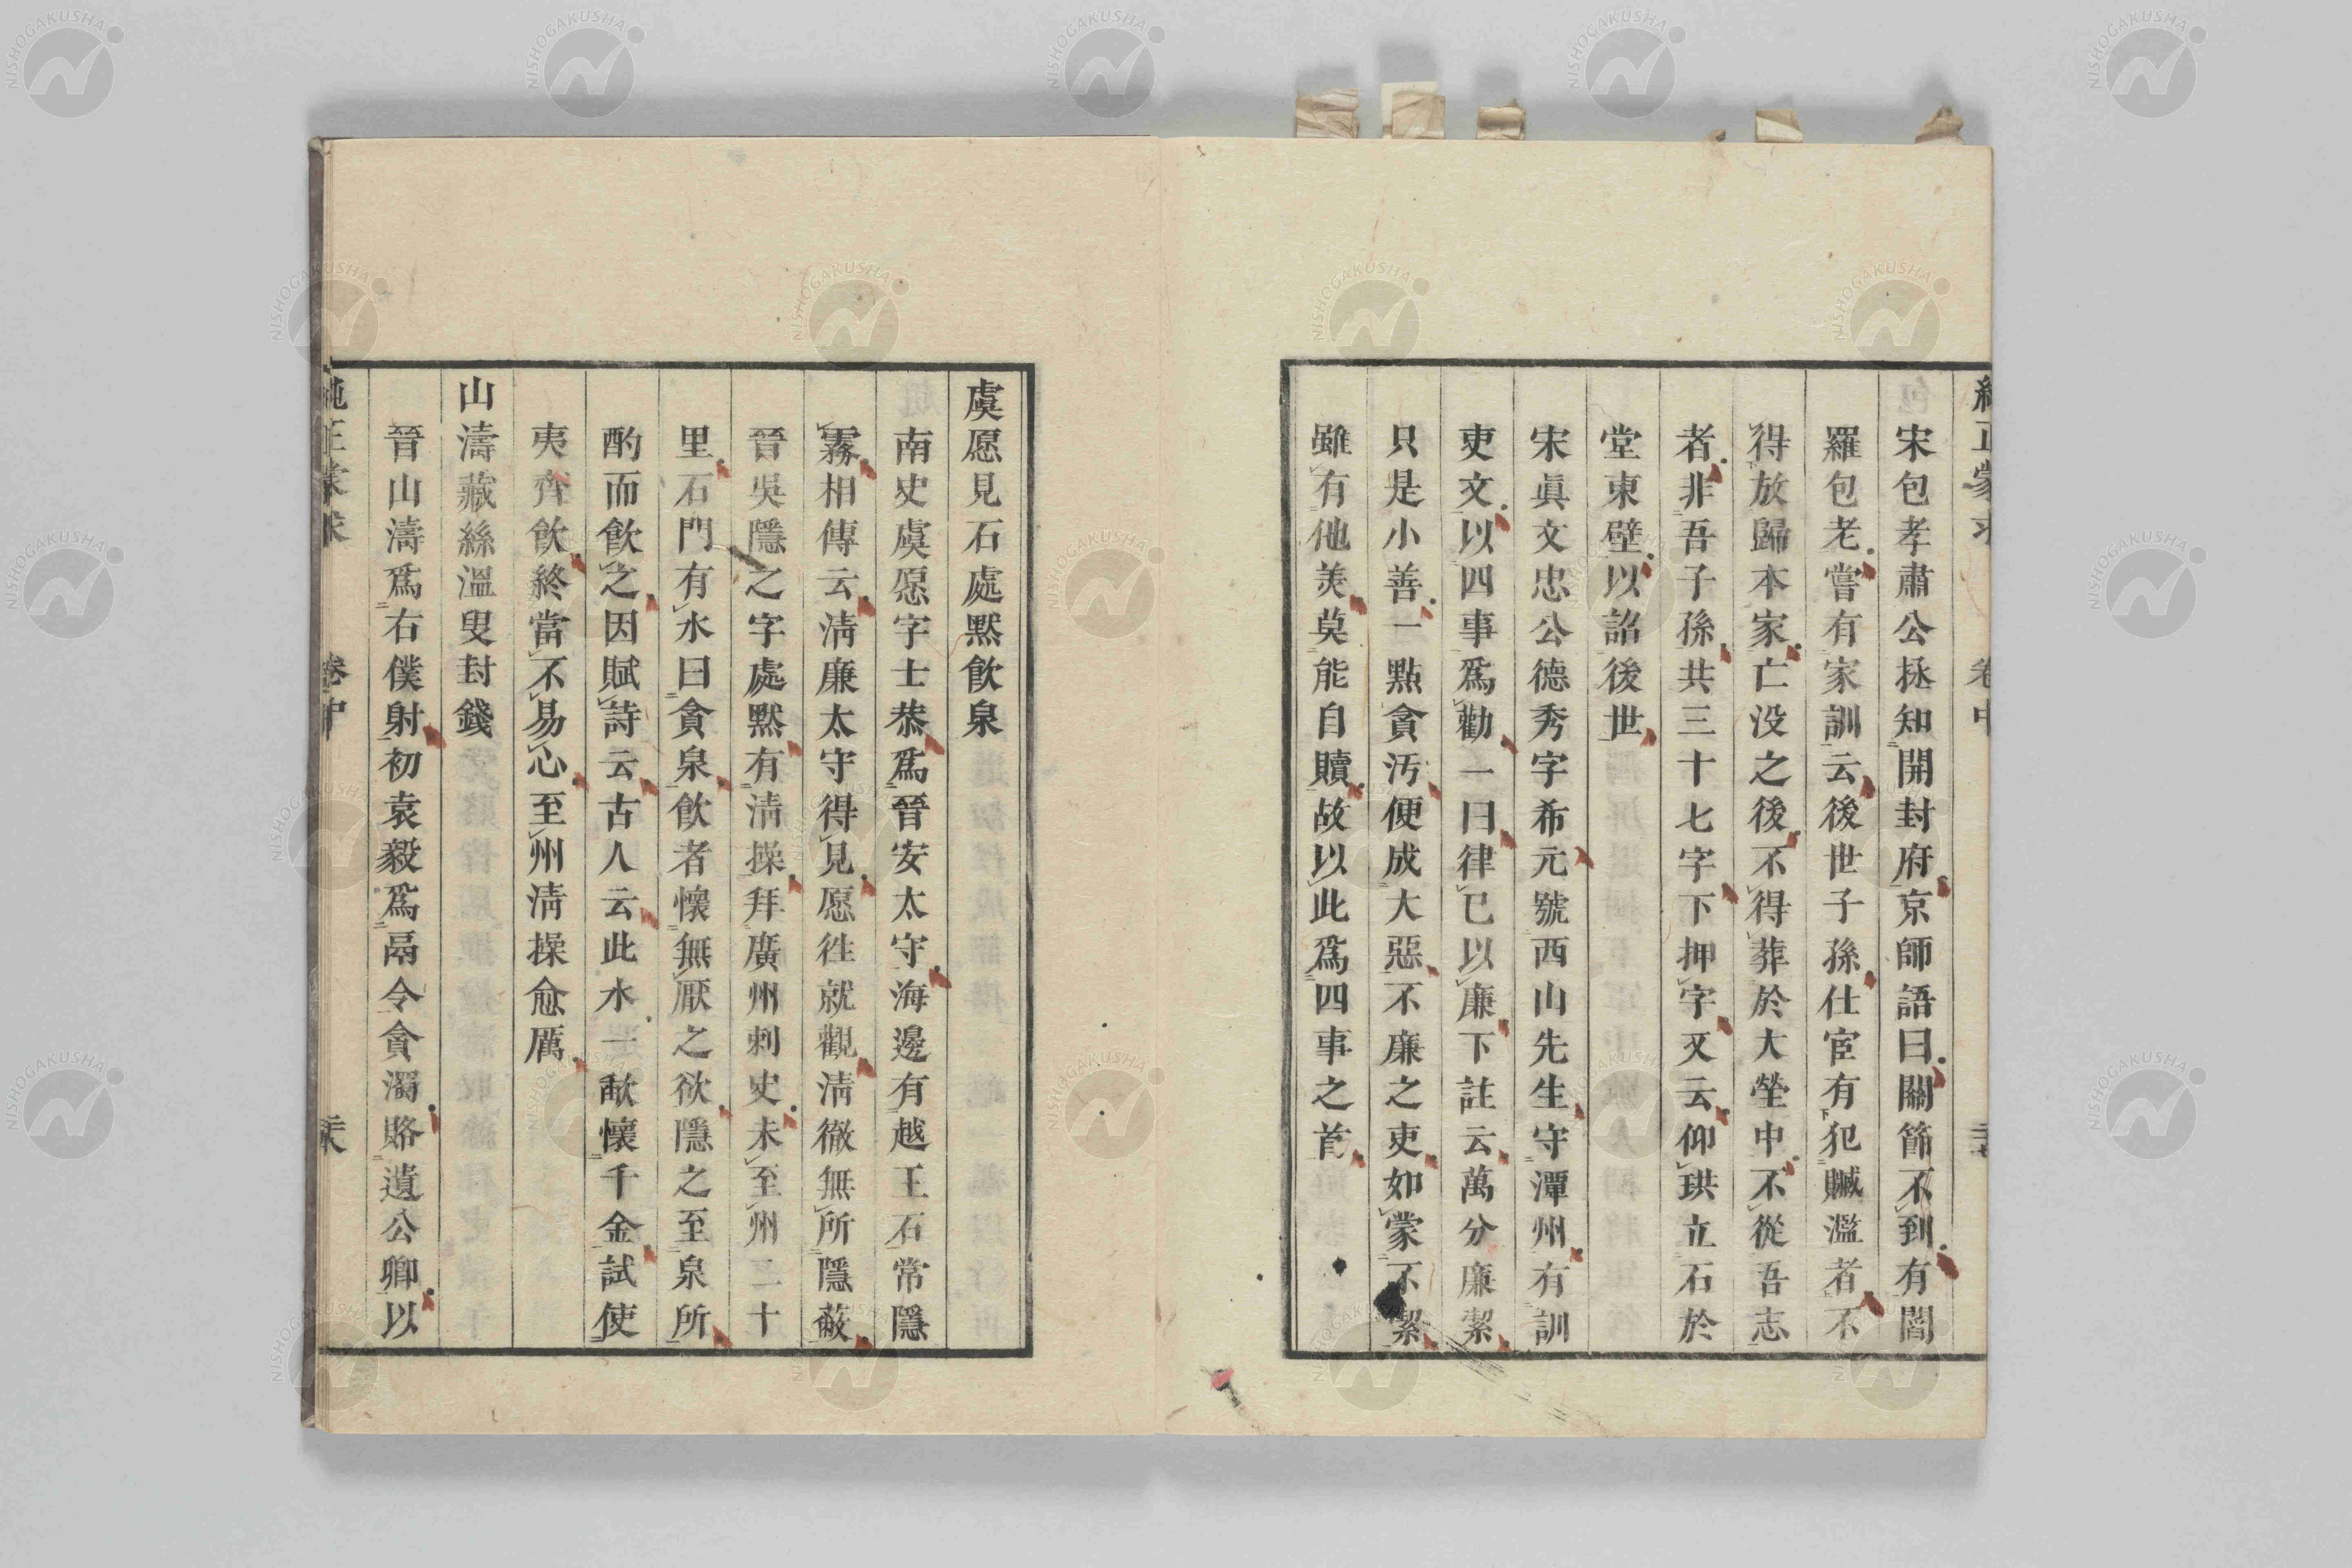 宋包孝肅公拯知開封府京師語曰關節不到有閻
羅包老嘗有家訓云後世子孫仕宦有犯贓濫者不
得放歸本家亡没之後不得葬於大塋中不從吾志
者非吾子孫共三十七字下押字又云仰珙立石於
堂東壁以詔後世
宋眞文忠公德秀字希元號西山先生守潭州有訓
吏文以四事爲勸一曰律己以廉下註云萬分廉潔
只是小善一點貪汚便成大惡不廉之吏如蒙不潔
雖有他美莫能自贖故以此爲四事之首
虞愿見石處黙飮泉
南史虞愿字士恭爲晉安太守海邊有越王石常隱
霧相傳云淸廉太守得見愿往就觀淸徹無所隱蔽
晉吳隱之字處黙有淸操拜廣州刺史未至州二十
里石門有水曰貪泉飮者懷無厭之欲隱之至泉所
酌而飮之因賦詩云古人云此水一歃懷千金試使
夷齊飮終當不易心至州淸操愈厲
山濤藏絲溫叟封錢
晉山濤爲右僕射初袁毅爲鬲令貪濁賂遺公卿以
純正蒙求 卷中
NISHOGAKUSHA